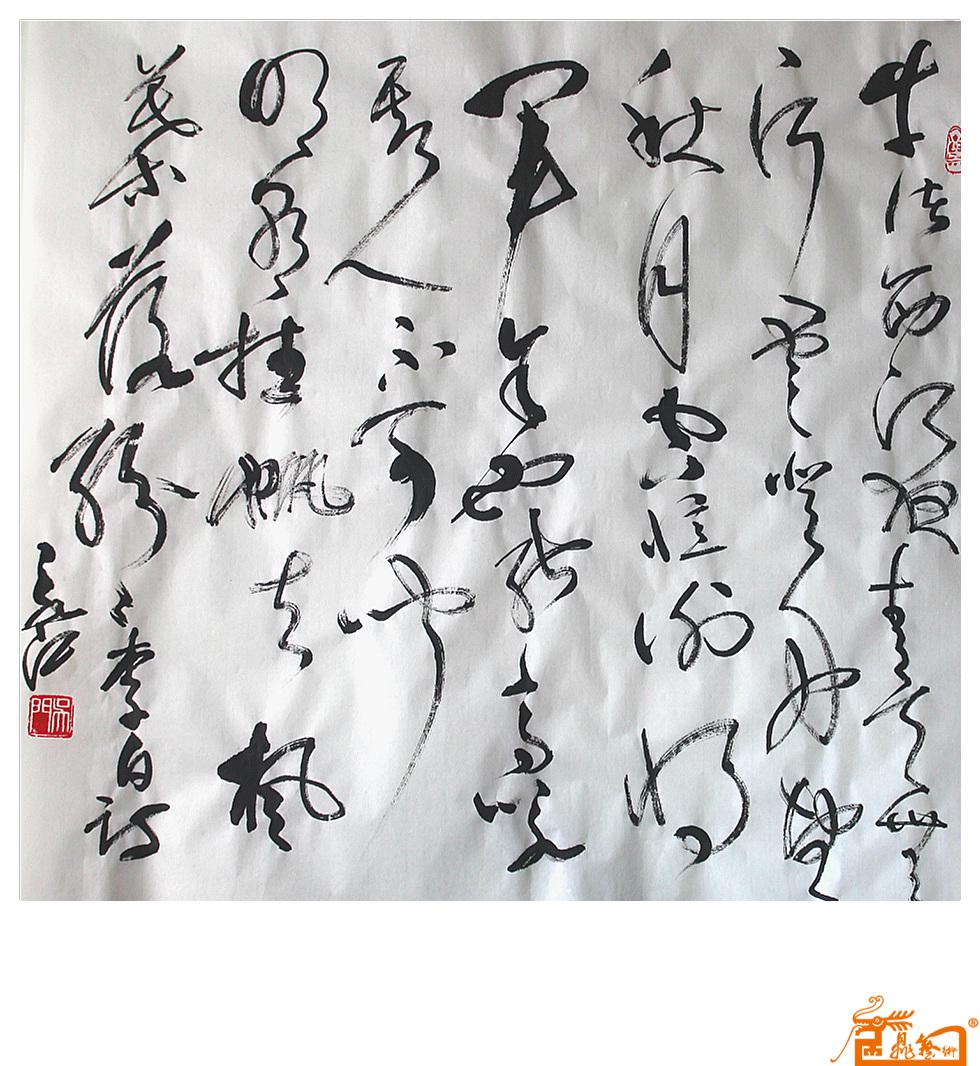 牛渚西江夜青天無
片雲登舟望
秋月空憶謝將
軍余亦能高詠
斯人不可聞
明朝挂帆去楓
葉落紛
々李白詩
吳門